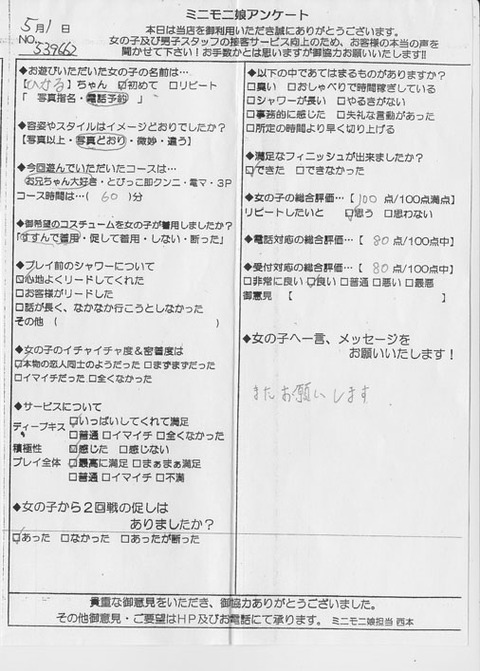 ミニモニ娘アンケート
5月1日
NO.539662
本日は当店を御利用いただき誠にありがとうございます。
女の子及び男子スタッフの接客サービス向上のため、お客様の本当の声を
聞かせて下さい!お手数かとは思いますが御協力お願いいたします!!
◆お遊びいただいた女の子の名前は…
【ひかる】ちゃん ☑初めて □リピート
「 写真指名・電話予約 」
◆容姿やスタイルはイメージどおりでしたか?
【写真以上・写真どおり・微妙・違う】
◆今回遊んでいただいたコースは…
お兄ちゃん大好き・とびっこ即クンニ・電マ・3P
コース時間は…( 60 )分
◆御希望のコスチュームを女の子が着用しましたか?
「すすんで着用・促して着用・しない・断った」
◆プレイ前のシャワーについて
☑心地よくリードしてくれた
□お客様がリードした
□話が長く、なかなか行こうとしなかった
その他( )
◆女の子のイチャイチャ度&密着度は
☑本物の恋人同士のようだった □まずまずだった
□イマイチだった □全くなかった
◆サービスについて
ディープキス ☑いっぱいしてくれて満足
□普通 □イマイチ □全くなかった
積極性 ☑感じた □感じない
プレイ全体 ☑最高に満足 □まぁまぁ満足
□普通 □イマイチ □不満
◆女の子から2回戦の促しは
ありましたか?
☑あった □なかった □あったが断った
◆以下の中であてはまるものがありますか?
□臭い □おしゃべりで時間稼ぎしている
□シャワーが長い □やるきがない
□事務的に感じた □失礼な言動があった
□所定の時間より早く切り上げる
◆満足なフィニッシュが出来ましたか?
☑できた □できなかった
◆女の子の総合評価…【 100 点/100点満点】
リピートしたいと ☑思う □思わない
◆電話対応の総合評価…【 80 点/100点中】
◆受付対応の総合評価…【 80 点/100点中】
□非常に良い ☑良い □普通 □悪い □最悪
御意見 【
◆女の子へ一言、メッセージを
お願いいたします!
またお願いします
貴重な御意見をいただき、御協力ありがとうございました。
その他御意見・ご要望はHP及びお電話にて承ります。 ミニモニ娘担当 西本